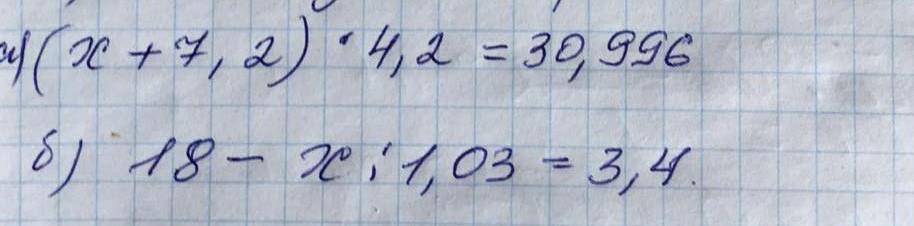 а) (x + 7,2) · 4,2 = 30,996
б) 18 - x : 1,03 = 3,4.